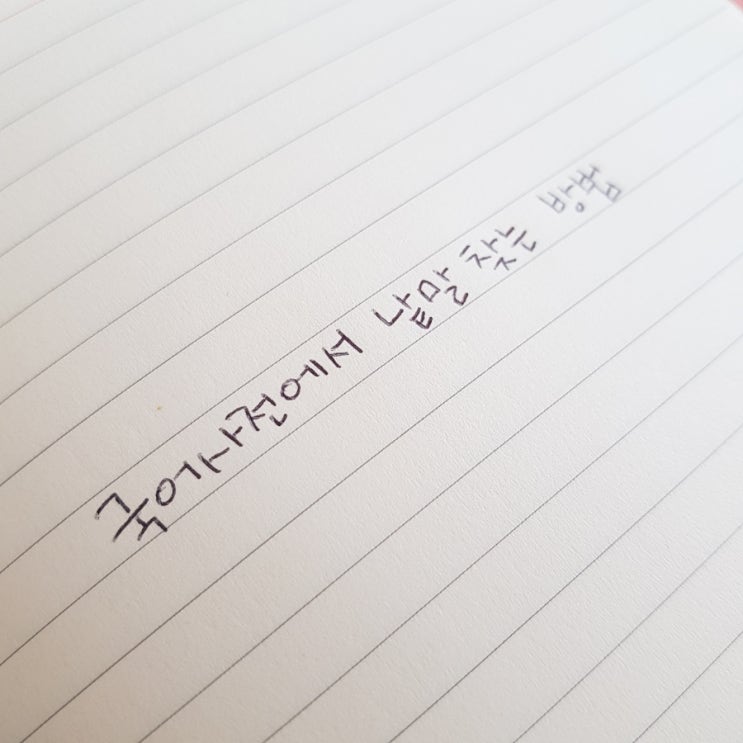 국어사전에서 낱말 찾는 방법